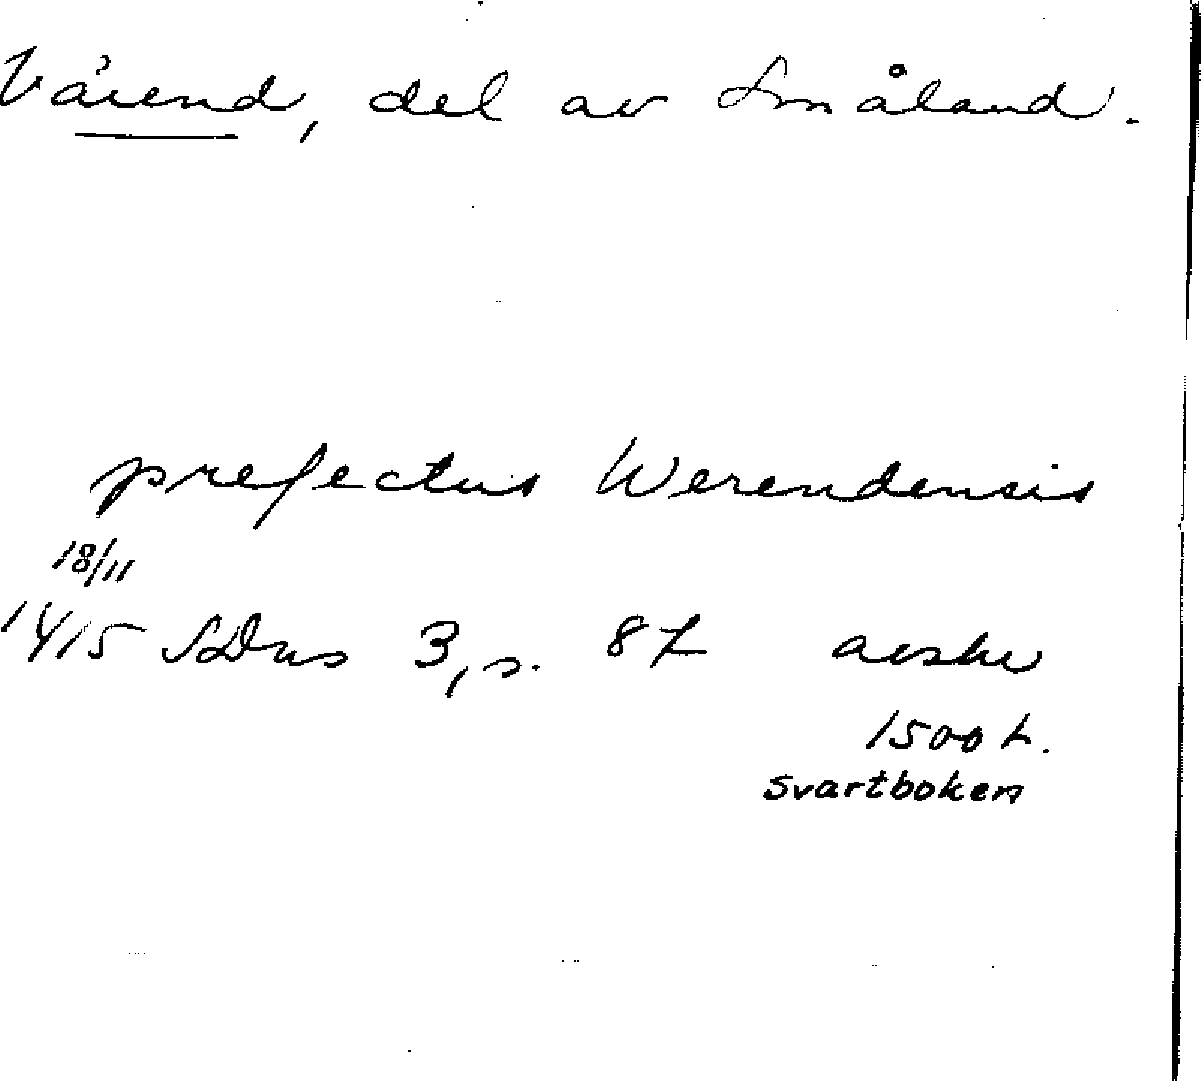 Värend, del av Småland.
prefectus Werendensis
18/11
1415 SDns 3, s. 87 avskr
1500 t.
svartboken